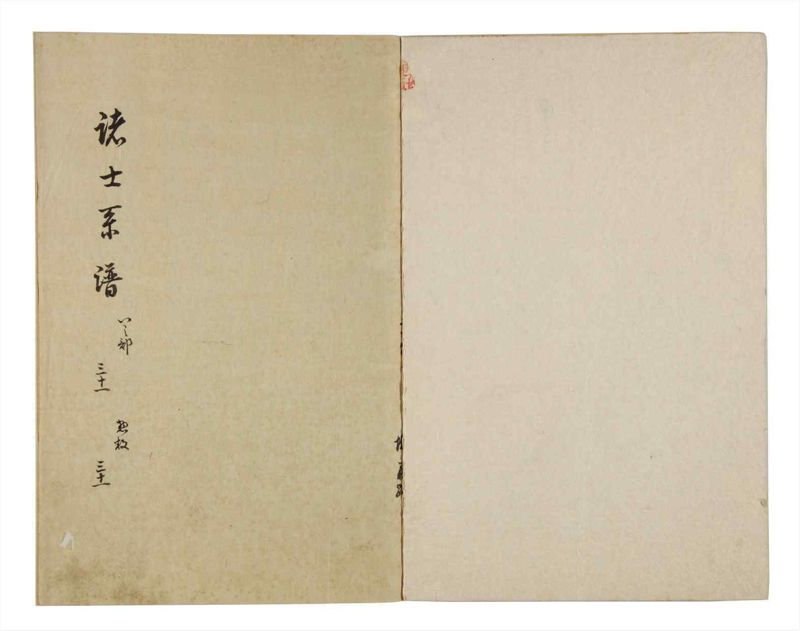 諸士系譜
い之部
三十一
惣数
三十一